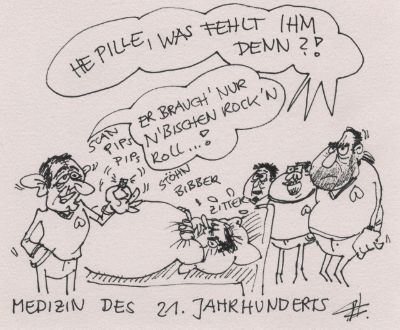 HE PILLE, WAS FEHLT IHM
DENN?!
ER BRAUCH' NUR
N'BISCHEN ROCK'N
ROLL...!
SCAN
PIPS
PIPS
STÖHN
BIBBER
ZITTER
MEDIZIN DES 21. JAHRHUNDERTS